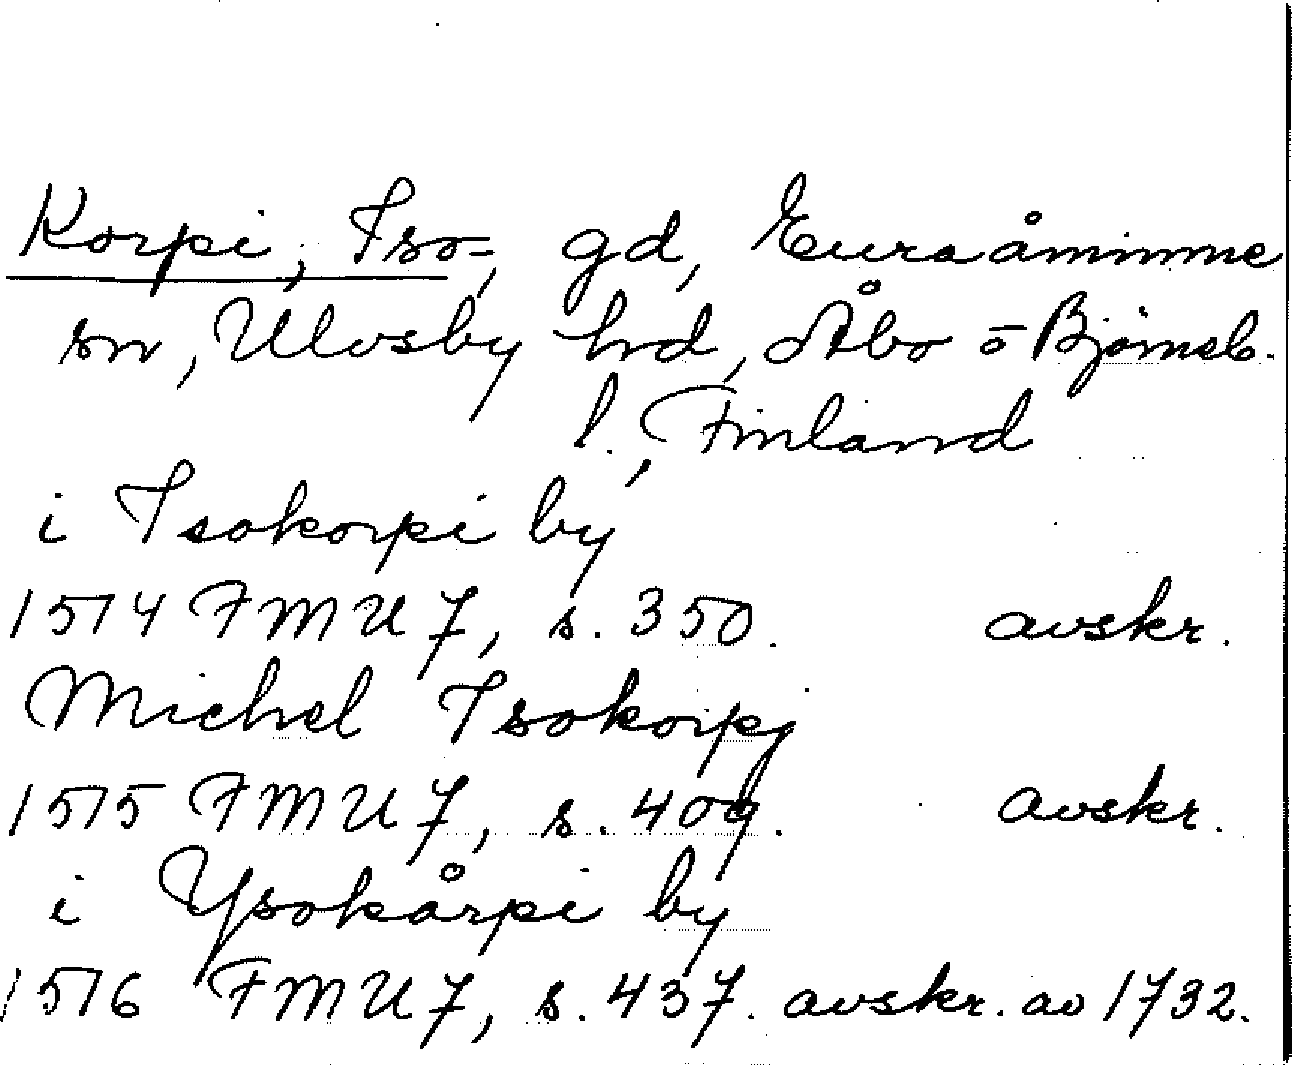 Korpi, Iso-, gd, Euraåminne
sn, Ulvsby hd, Åbo o Björneb.
l., Finland
i Isokorpi by
1514 FMU 7, s. 350. avskr.
Michel Isokorpj
1515 FMU 7, s. 409. avskr.
i Ysokårpi by
1516 FMU 7, s. 437. avskr. av 1732.